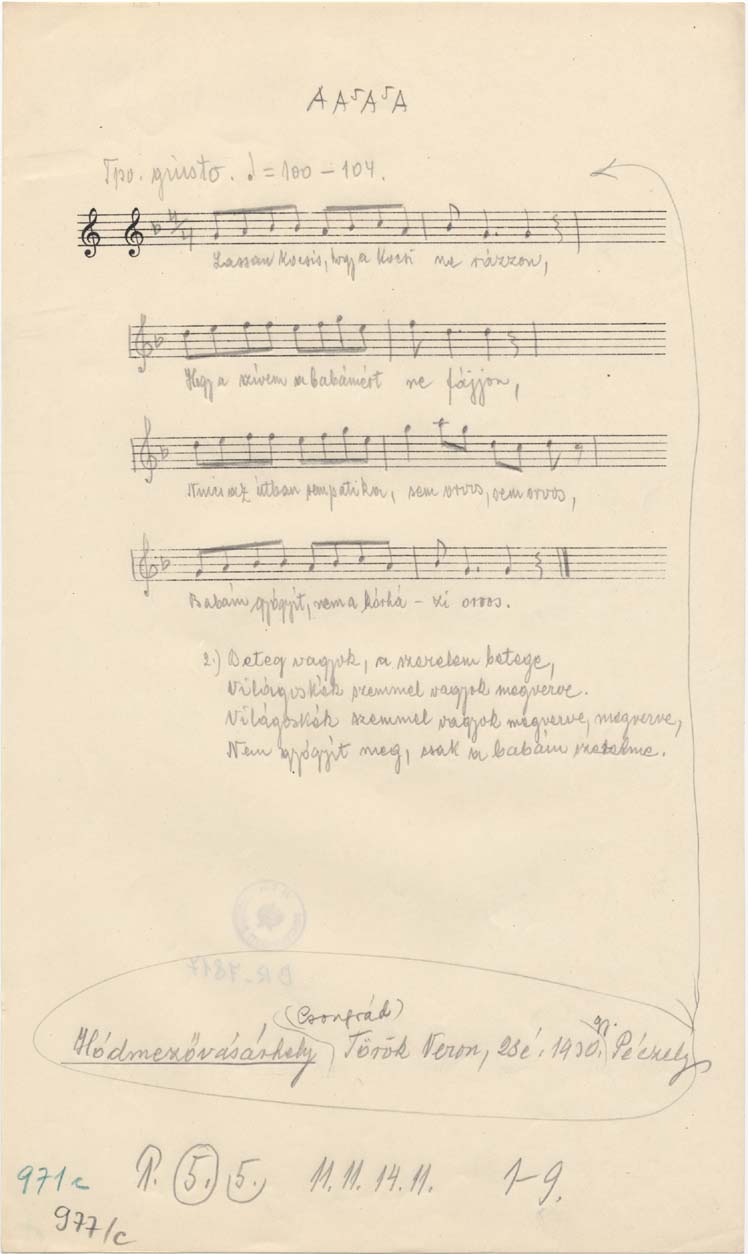 A A⁵ A⁵ A
Tpo. giusto. ♩ = 100 – 104.
4/4
Lassan kocsis, hogy a kocsi ne rázzon,
Hogy a szívem a babámért ne fájjon,
Nincs az útban sempatika, sem orvos, sem orvos,
Babám gyógyít, nem a kórhá – zi orvos.
2.) Beteg vagyok, a szerelem betege,
Világoskék szemmel vagyok megverve.
Világoskék szemmel vagyok megverve, megverve,
Nem gyógyít meg, csak a babám szerelme.
BR. 7817
(Csongrád)
Hódmezővásárhely Török Veron, 28 é. 1930. gy. Péczely
971c 5. 5. 11. 11. 14. 11. 1–9.
977/c